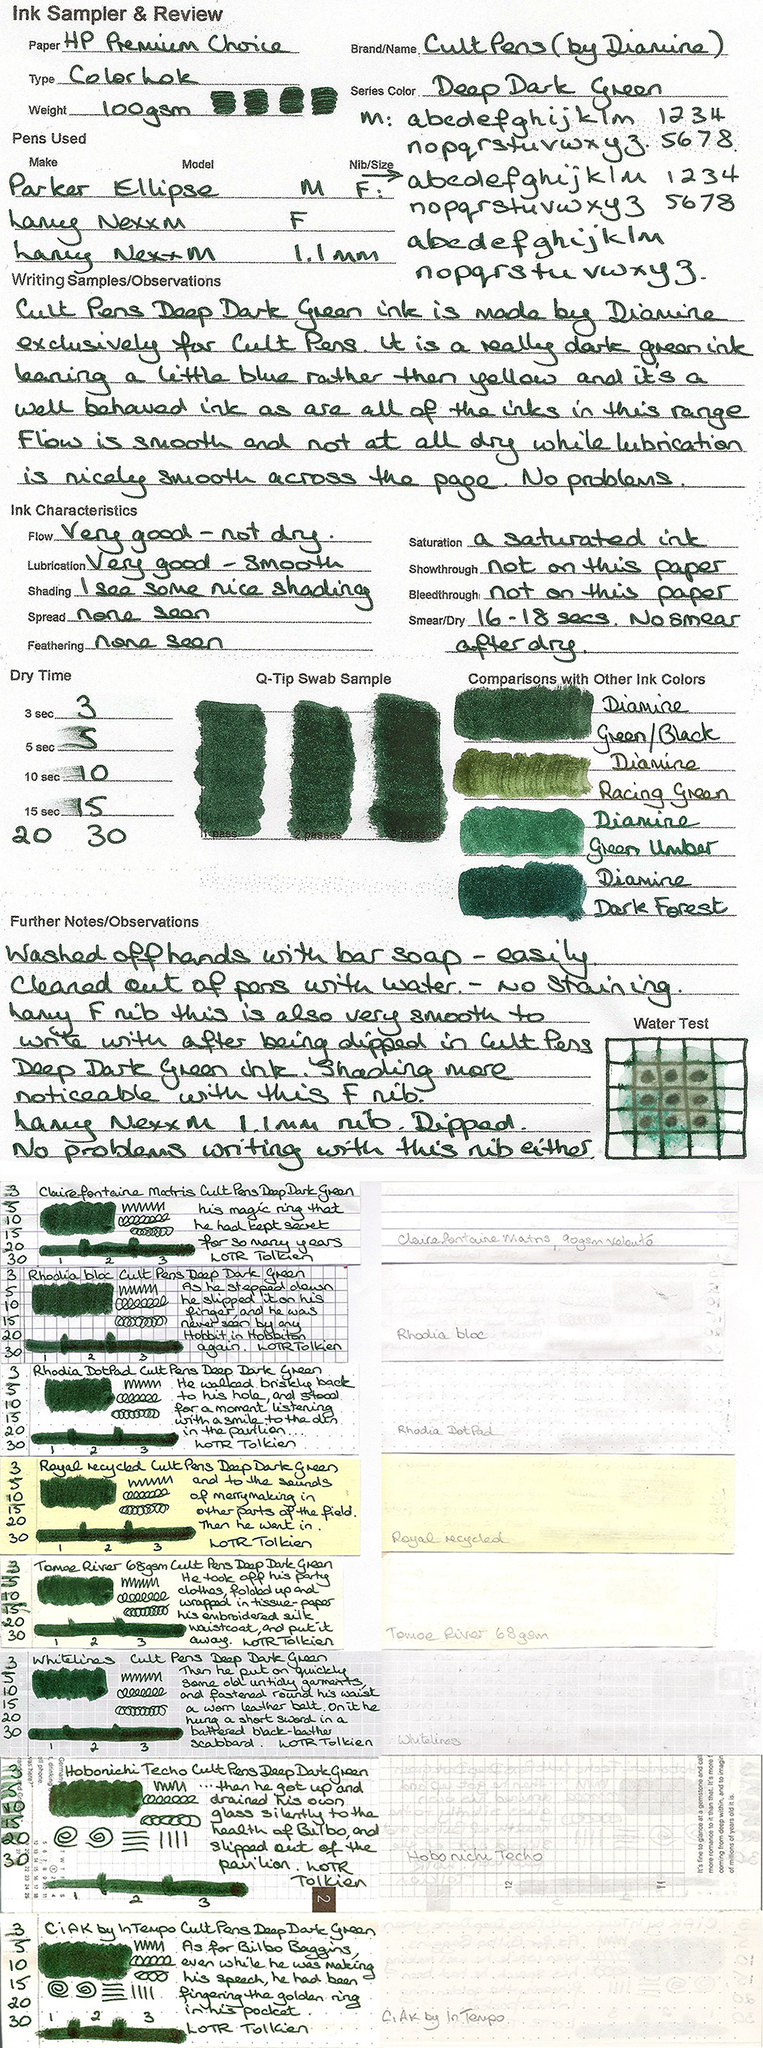 Ink Sampler & Review
Paper HP Premium Choice
Brand/Name Cult Pens (by Diamine)
Type Colorlok
Series Color Deep Dark Green
Weight 100gsm
M: abcdefghijklm 1234
nopqrstuvwxyz. 5678.
Pens Used
Make Model Nib/Size
Parker Ellipse M
F: abcdefghijklm 1234
nopqrstuvwxyz 5678
Lamy Nexx M F
Lamy Nexx M 1.1mm
abcdefghijklm
nopqrstuvwxyz.
Writing Samples/Observations
Cult Pens Deep Dark Green ink is made by Diamine
exclusively for Cult Pens. It is a really dark green ink
leaning a little blue rather then yellow and it's a
well behaved ink as are all of the inks in this range
Flow is smooth and not at all dry while lubrication
is nicely smooth across the page. No problems.
Ink Characteristics
Flow Very good - not dry.
Lubrication Very good - smooth
Shading I see some nice shading
Spread none seen
Feathering none seen
Saturation a saturated ink
Showthrough not on this paper
Bleedthrough not on this paper
Smear/Dry 16-18 secs. No smear
after dry.
Dry Time
3 sec 3
5 sec 5
10 sec 10
15 sec 15
20 30
Q-Tip Swab Sample
1 pass 2 passes 3 passes
Comparisons with Other Ink Colors
Diamine
Green/Black
Diamine
Racing Green
Diamine
Green Umber
Diamine
Dark Forest
Further Notes/Observations
Washed off hands with bar soap - easily
Cleaned out of pens with water. - No staining.
Lamy F nib this is also very smooth to
write with after being dipped in Cult Pens
Deep Dark Green ink. Shading more
noticeable with this F nib.
Lamy Nexx M 1.1mm nib. Dipped.
No problems writing with this nib either
Water Test
3
5
10
15
20
30
Clairefontaine Matris Cult Pens Deep Dark Green
his magic ring that
he had kept secret
for so many years
LOTR Tolkien
1 2 3
Clairefontaine Matris, 90gsm velouté
3
5
10
15
20
30
Rhodia bloc Cult Pens Deep Dark Green
As he stepped down
he slipped it on his
finger, and he was
never seen by any
Hobbit in Hobbiton
again. LOTR Tolkien
1 2 3
Rhodia bloc
3
5
10
15
20
30
Rhodia DotPad Cult Pens Deep Dark Green
He walked briskly back
to his hole, and stood
for a moment listening
with a smile to the din
in the pavilion...
LOTR Tolkien
1 2 3
Rhodia DotPad
3
5
10
15
20
30
Royal recycled Cult Pens Deep Dark Green
and to the sounds
of merrymaking in
other parts of the field.
Then he went in.
LOTR Tolkien
1 2 3
Royal recycled
3
5
10
15
20
30
Tomoe River 68gsm Cult Pens Deep Dark Green
He took off his party
clothes, folded up and
wrapped in tissue-paper
his embroidered silk
waistcoat, and put it
away. LOTR Tolkien
1 2 3
Tomoe River 68gsm
3
5
10
15
20
30
Whitelines Cult Pens Deep Dark Green
Then he put on quickly
some old untidy garments,
and fastened round his waist
a worn leather belt. On it he
hung a short sword in a
battered black-leather
scabbard. LOTR Tolkien
1 2 3
Whitelines
3
5
10
15
20
30
Hobonichi Techo Cult Pens Deep Dark Green
...then he got up and
drained his own
glass silently to the
health of Bilbo, and
slipped out of the
pavilion. LOTR
Tolkien
1 2 3
2
Hobonichi Techo
12 11
It's fine to glance at a gemstone and
more romance to it than that. It's more
coming from deep within, and to imagin
of millions of years old it is.
3
5
10
15
20
30
CIAK by InTempo Cult Pens Deep Dark Green
As for Bilbo Baggins,
even while he was making
his speech, he had been
fingering the golden ring
in his pocket.
LOTR Tolkien
1 2 3
CIAK by InTempo